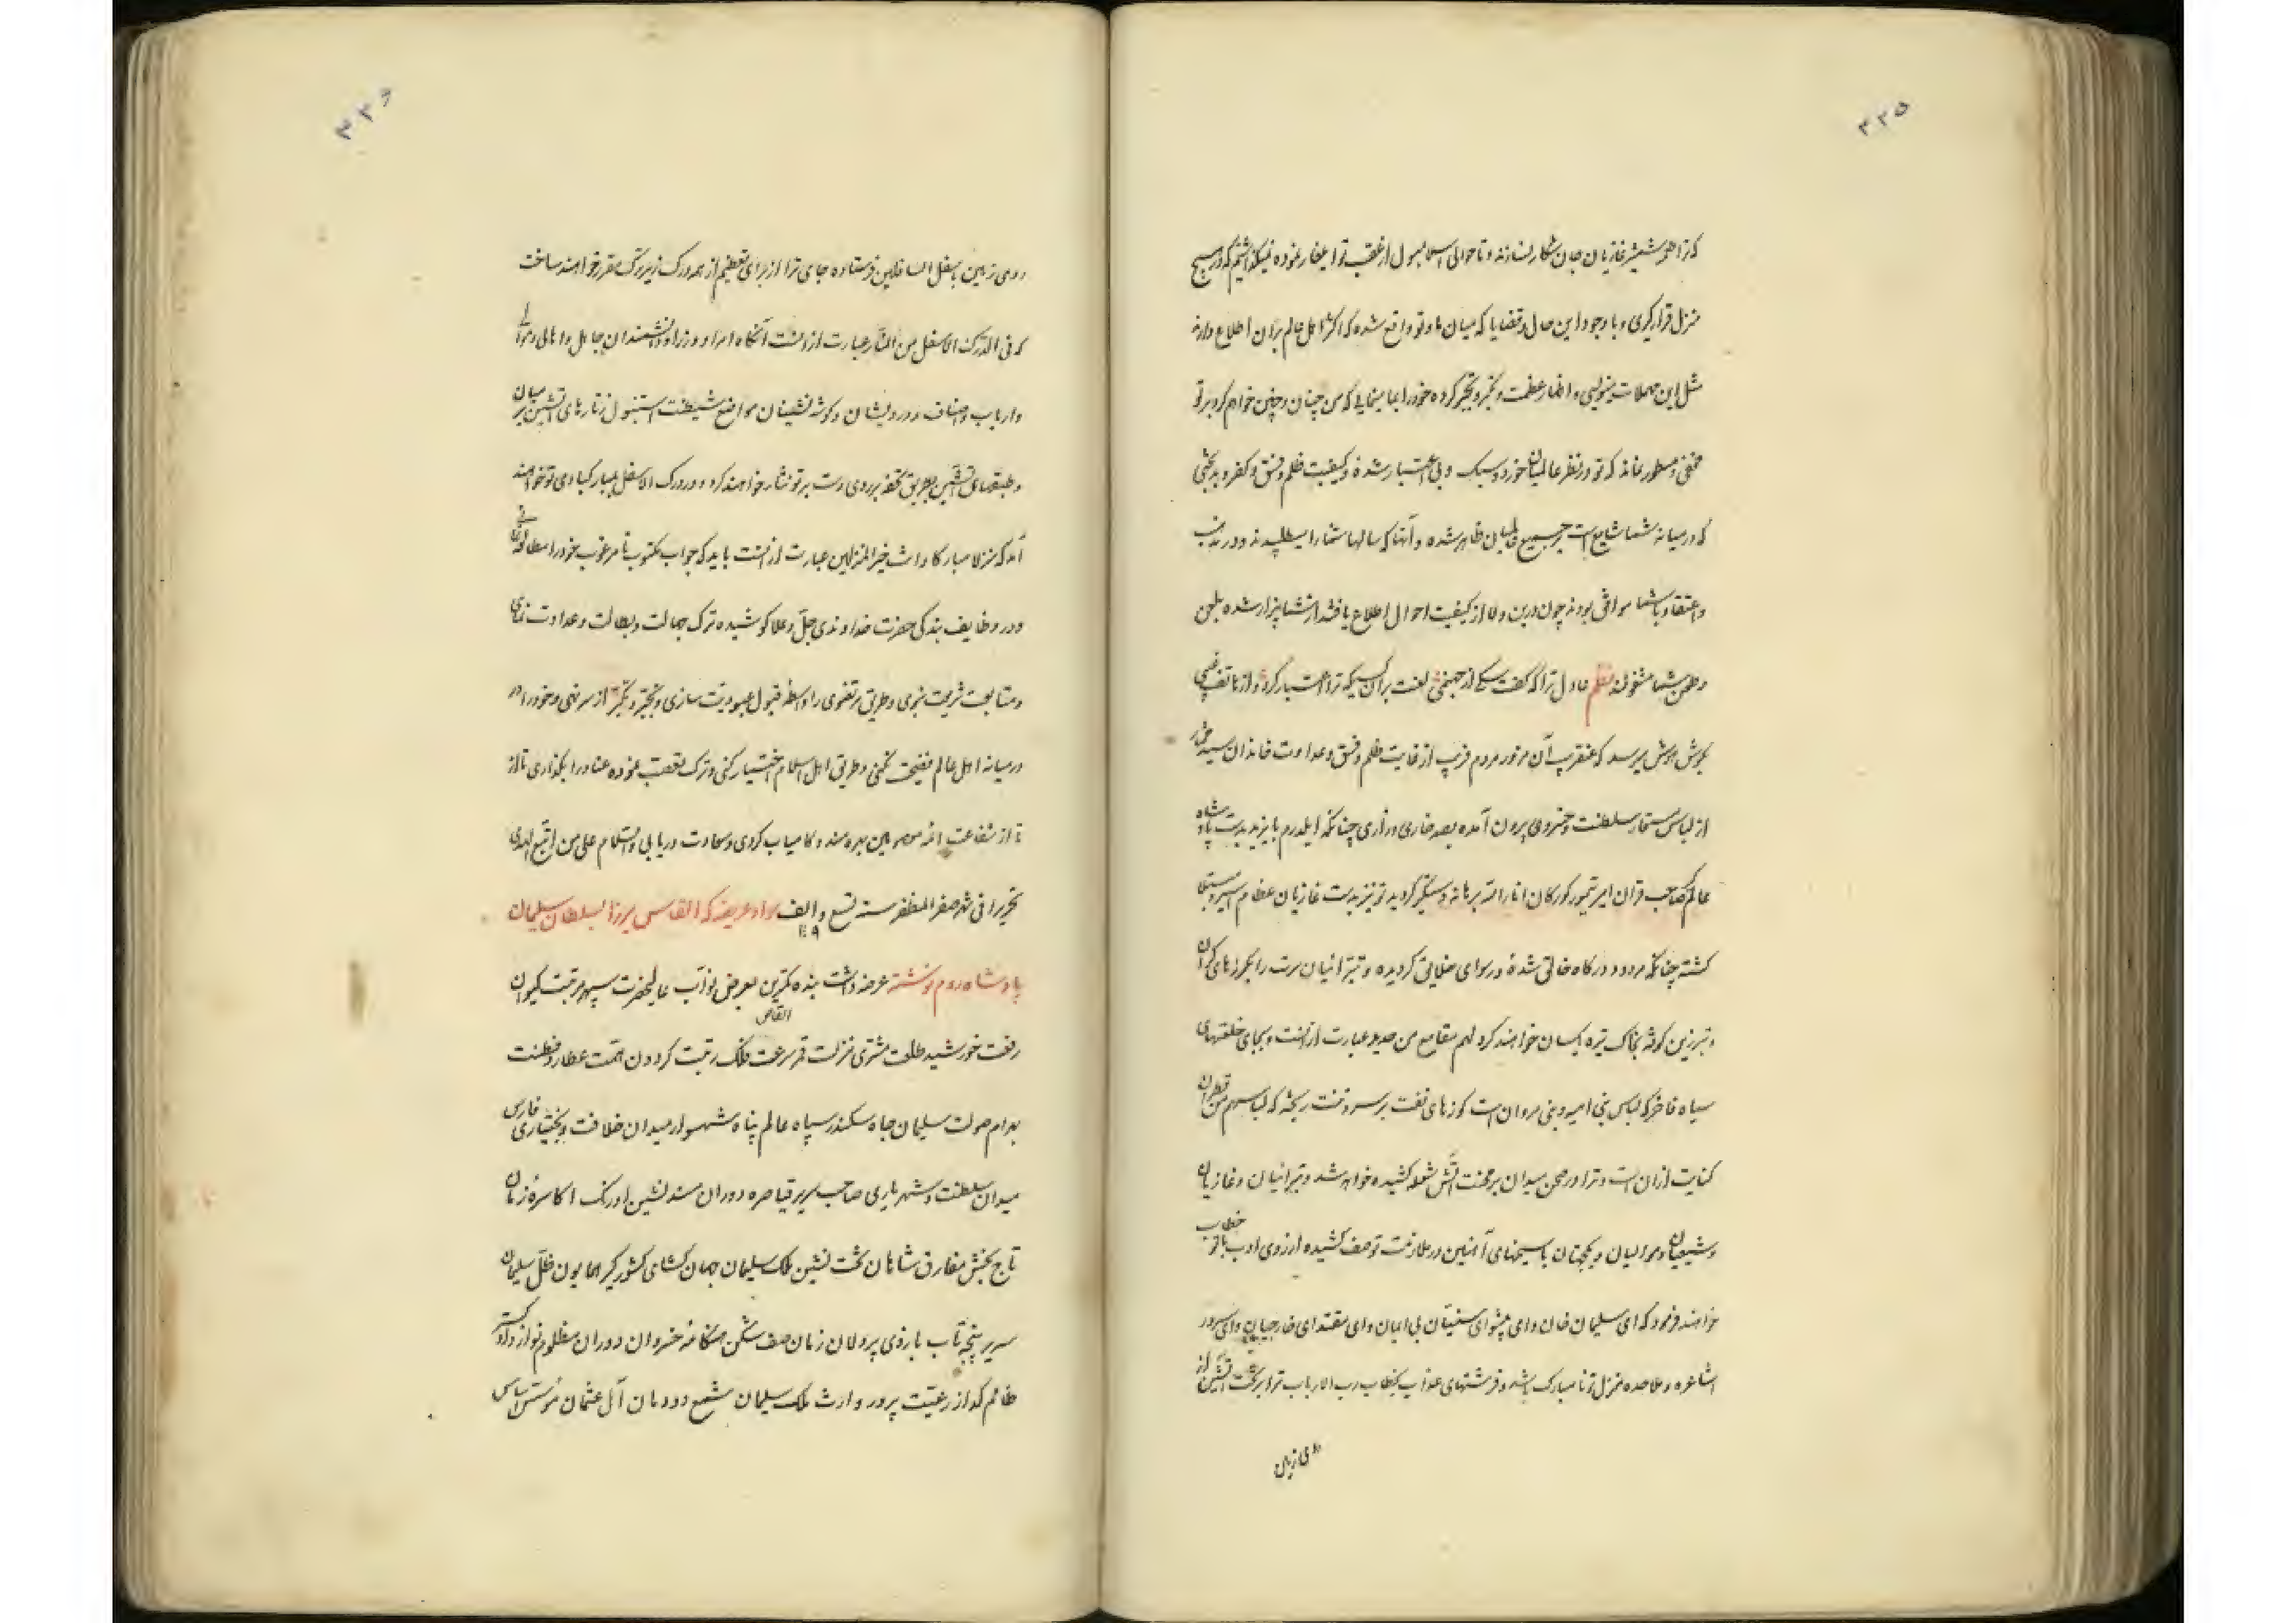 ۳۳۵
که ترا طعمهٔ شمشیر غازیان جان شکار نسازند و تا حوالی اسلامبول از عقب تو ایلغار نموده نمیگذاشتیم که در هیچ
منزل قرار گیری و با وجود این حال و قضایا که میان ما و تو واقع شده که اکثر اهل عالم بران اطلاع دارند
مثل این مهملات می‌نویسی و اظهار عظمت و تکبر و تجبر کرده خود را مینمایی که من چنان و چنین خواهم کرد بر تو
مخفی و مستور نماند که تو در نظر عالمیان خورد و سبک و بی اعتبار شدهٔ و کیفیت ظلم و فسق و کفر و بدبختی
که در میانه شما شایع است بر جمیع عالمیان ظاهر شده و آنها که سالها شما را میطلبیدند و در مذهب
و اعتقاد با شما موافق بودند چون درین ولا از کیفیت احوال اطلاع یافتند از شما بیزار شده بلعن
و طعن شما مشغولند نظم عادل ترا که گفت سگ از جهنمی لعنت بر آن کسیکه ترا اعتبار کرد و از هاتف غیبی
بگوش هوش میرسد که عنقریب آن مغرور مردم فریب از غایت ظلم و فسق و عداوت خاندان سید مختار
از لباس مستعار سلطنت و خسروی بیرون آمده بصد خاری و زاری چنانکه ایلدرم بایزید بدست پادشاه
عالمگیر صاحب قران امیر تیمور کورکان انار الله برهانه دستگیر گردید تو نیز بدست غازیان عظام اسیر و مبتلا
گشته چنانکه مردود درگاه خالق شدهٔ و رسوای خلایق گردیده و تبرائیان سرت را بگرزهای گران
و تبرزین کوفته بخاک تیره یکسان خواهند کرد لهم مقامع من حدید عبارت از انست و بجای خلعتهای
سیاه فاخر که لباس بنی امیه و بنی مروان است کوزهای نفت بر سر و تنت ریخته که لباسهم من قطران
کنایت از ان است و ترا در صحن میدان بر محنت آتش شعله کشیده خواهد شد و تبرائیان و غازیان
و شیعیان و موالیان و یکجهتان با سیخهای آهنین در ملازمت تو صف کشیده از روی ادب با تو خطاب
خواهند فرمود که ای سلیمان خان و ای پیشوای سنیان بی ایمان و ای مقتدای خارجیان و ای سرور
اشاعره و ملاحده منزل تو نامبارک باشد و فرشتهای عذاب بخطاب رب الارباب ترا بر تخت آتشین از
روی زمین
۳۳۶
روی زمین باسفل السافلین فرستاده جای ترا از برای تعظیم از همه درک زیرترک مقرر خواهند ساخت
که فی الدرک الاسفل من النار عبارت از انست آنگاه امرا و وزرا و دانشمندان جاهل و اهالی و موالی
و ارباب و اصناف و درویشان و گوشه نشینان مواضع شیطنت استنبول زنارهای آتشین بر میان
و طبقهای آتشین بطریق تحفه بر روی دست بر تو نثار خواهند کرد و در درک الاسفل بمبارکبادی تو خواهند
آمد که منزلا مبارکا و انت خیر المنزلین عبارت از انست باید که جواب مکتوب نامرغوب خود را مطالعه کنی
و در وظایف بندگی حضرت خداوندی جل و علا کوشیده ترک جهالت و بطالت و عداوت نمائی
و متابعت شریعت نبوی و طریق مرتضوی را واسطه قبول عبودیت سازی و تجبر و تکبر از سر نهی و خود را در
در میانه اهل عالم فضیحت نکنی و طریق اهل اسلام اختیار کنی و ترک تعصب نموده عناد را بگذاری تا از
تا از شفاعت ائمه معصومین بهره مند و کامیاب گردی و سعادت دریابی والسلام علی من اتبع الهدی
تحریرا فی شهر صفر المظفر سنه تسع و الف سواد عریضه که القاس میرزا بسلطان سلیمان
۱۰۰۹
پادشاه روم نوشته عرضه داشت بنده کمترین بعرض نواب عالیحضرت سپهر مرتبت کیوان
القاص
رفعت خورشید طلعت مشتری منزلت قمر سرعت فلک رتبت گردون همت عطارد فطنت
بهرام صولت سلیمان جاه سکندر سپاه عالم پناه شهسوار میدان خلافت و بختیاری فارس
میدان سلطنت و شهریاری صاحب سریر قیاصره دوران مسند نشین اورنک اکاسرهٔ زمان
تاج بخش مفارق شاهان تخت نشین ملک سلیمان جهان گشای کشورگیر همایون ظل سلیمان
سریر پنجه تاب بازوی پردلان زمان صف شکن هنگامه خسروان دوران مظلوم نواز دادگستر
ظالم گداز رعیت پرور وارث ملک سلیمان شمع دودمان آل عثمان مؤسس اساس